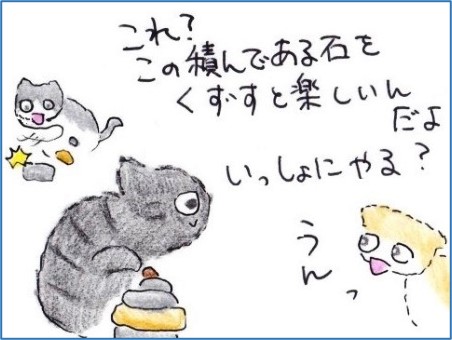 これ？
この積んである石を
くずすと楽しいん
だよ
いっしょにやる？
うんっ